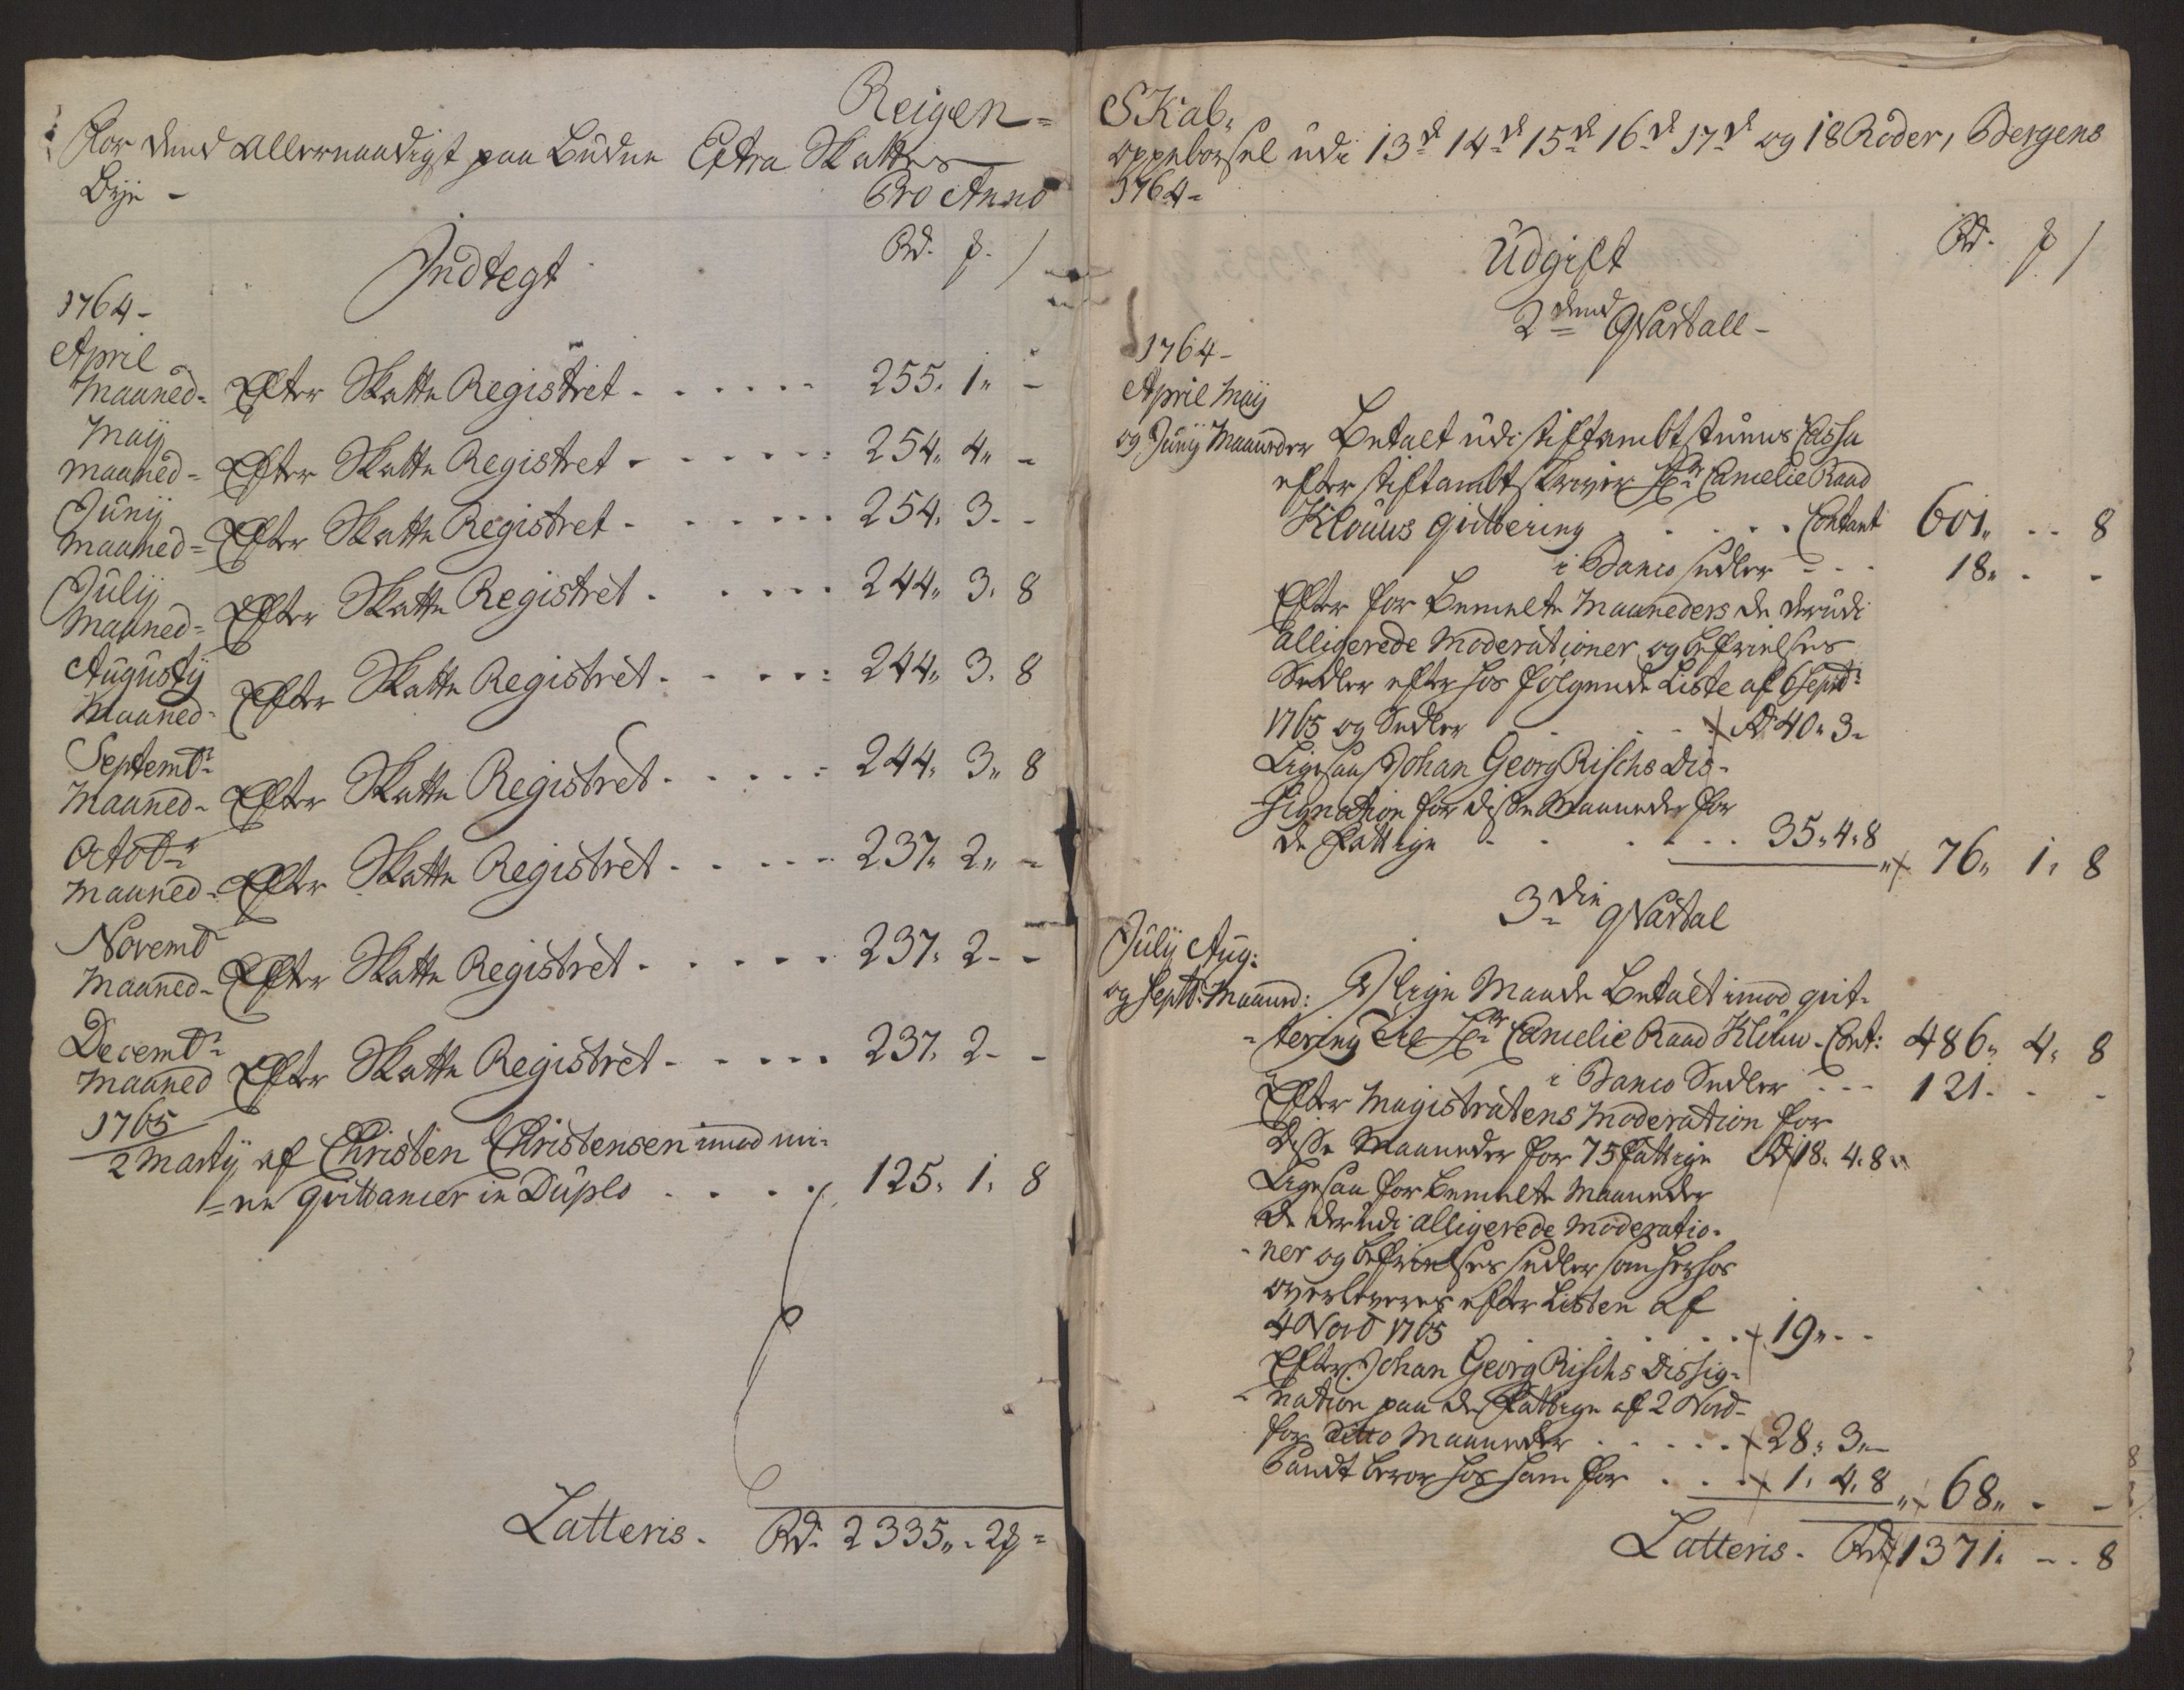 Reigen=
For dend allernaadigst paa Budne Extra Skattes
Bye -
Pro Anno
Indtegt
Rd. ƺ. /
1764-
April
Maaned= Efter Skatte Registret . . . . . . 255. 1" -
Maij
maaned= Efter Skatte Registret . . . . . . 254" 4" -
Junij
maaned= Efter Skatte Registret . . . . . . 254. 3 - -
Julij
Maaned= Efter Skatte Registret . . . . . 244" 3. 8
Augustij
Maaned- Efter Skatte Registret . . . . . 244" 3. 8
Septembr
Maaned- Efter Skatte Registret . . . . . 244. 3" 8
Octobr
Maaned- Efter Skatte Registret . . . . . 237. 2" -
Novemb
Maaned- Efter Skatte Registret . . . . . 237. 2 - -
Decembr
Maaned Efter Skatte Registret . . . . . 237. 2 - -
1765
2 Martij af Christen Christensen imod mi-
=ne qvittancer in Duplo . . . . 125. 1. 8
Latteris. Rd. 2335". 2ƺ =
SKab,
oppeborsel udi 13d 14d 15d 16d 17d og 18 Roder, Bergens
1764-
Udgift
Rd. ƺ /
2dend Qvartall-
1764-
April Maij
og Junij Maaneder Betalt udi Stiftambtstuens Cassa
efter Stiftambtskriver Hr Cancelie Raad
Klouws qvittering . . . . Contant 601" - - 8
i Banco sedler - - - 18" . -
Efter for bemelte Maaneders de derudi
alligerede Moderationer og befrielses
Sedler efter hos følgende Liste af 6 Septr
1765 og Sedler . . . Rd 40. 3-
Ligesaa Johan Georg Rischs Des-
signation for disse Maaneder for
de Fattige . . . . 35. 4. 8 76" 1. 8
3die Qvartal
Julij Aug:
og Septb: Maaned: J lige Maade Betalt imod qvit-
=tering til Hr Cancelie Raad Klouw - Cont: 486" 4. 8
i Banco Sedler - - - 121. - -
Efter Magistratens Moderation for
disse Maaneder for 75 fattige Rd 18. 4. 8
Ligesaa for bemelte Maaneder
de derudi alligerede Moderatio-
-ner og befrielses sedler som herhos
overleveres efter Listen af
4 Novb 1765 . . . . 19" - -
Efter Johan Georg Rischs Dessig-
-nation paa de Fattige af 2 Novb-
for ditto Maaneder . . . . . 28. 3. -
Samt beror hos ham for . . . 1. 4. 8 68" - -
Latteris. Rd 1371. - . 8